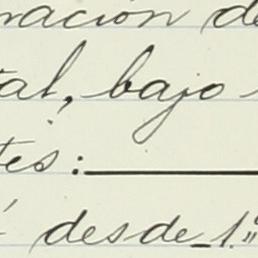 ración de
tal, bajo
tes:
desde 1.º